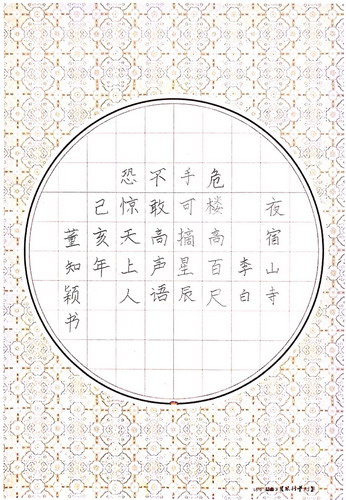 夜宿山寺
李白
危楼高百尺
手可摘星辰
不敢高声语
恐惊天上人
己亥年
董知颖书